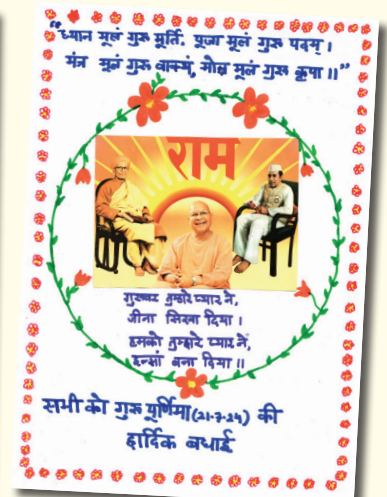 "ध्यान मूलं गुरू मूर्ति, पूजा मूलं गुरू पदम् ।
मंत्र मूलं गुरू वाक्यं, मोक्ष मूलं गुरू कृपा ॥"
राम
गुरुवर तुम्हारे प्यार ने,
जीना सिखा दिया ।
हमको तुम्हारे प्यार ने,
इन्सां बना दिया ॥
सभी को गुरू पूर्णिमा (21-7-24) की
हार्दिक बधाई